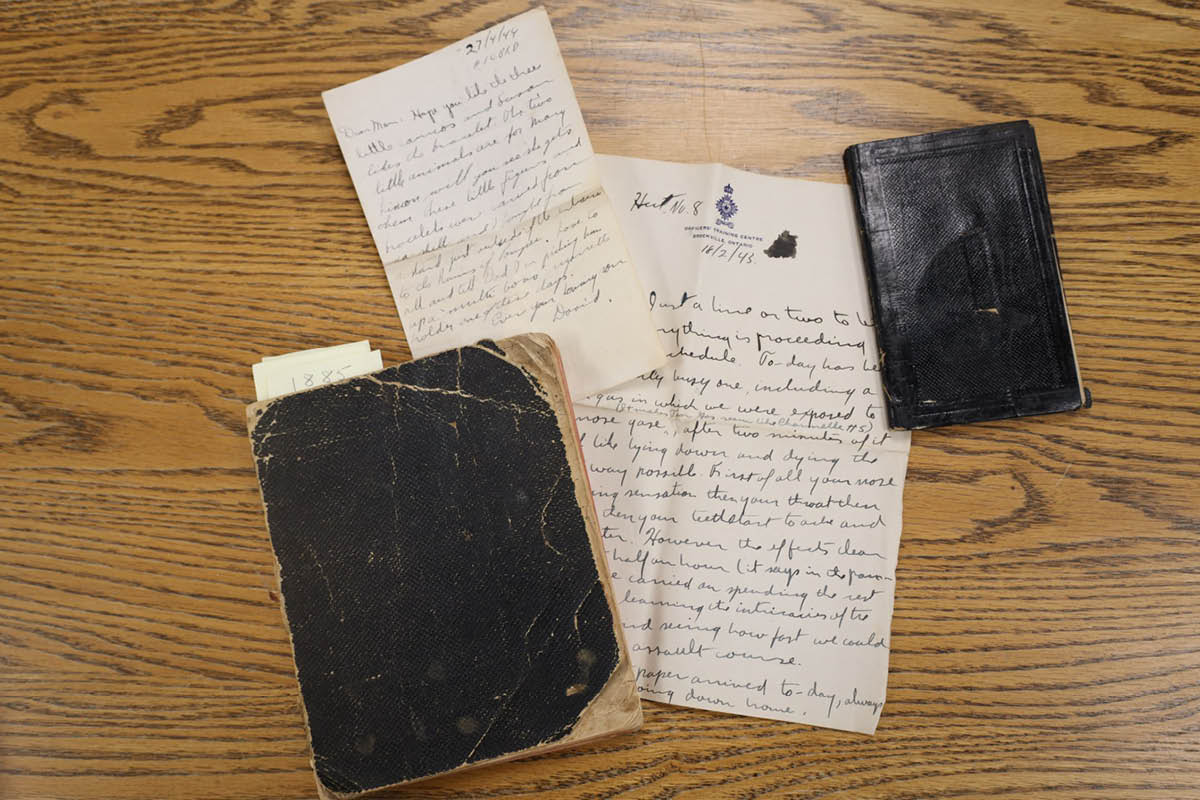 27/4/44
Dear Mom: Hope you like the three
little cameos and Susan
likes the bracelet. The two
little animals are for Mary
will you see she gets
them. These little figures and
bracelets were carved from
shell and I bought
just outside the entrance
to the
all and tell Dad I'm picking him
up a cigarette
holder one of these days.
Ever your loving son
David.
1885
Hut. No. 8
OFFICERS' TRAINING CENTRE
BROCKVILLE, ONTARIO
18/2/43.
Just a line or two to le
rything is proceeding
schedule. To-day has be
ly busy one, including a
gas in which we were exposed to
nose gase, after two minutes of it
l like lying down and dying the
way possible. First of all your nose
ing sensation then your throat then
then your teeth start to ache and
ter. However the effects clear
half an hour (it says in the pam-
e carried on spending the rest
learning the intricacies of the
nd seeing how fast we could
assault course.
paper arrived to-day, always
oing down home.